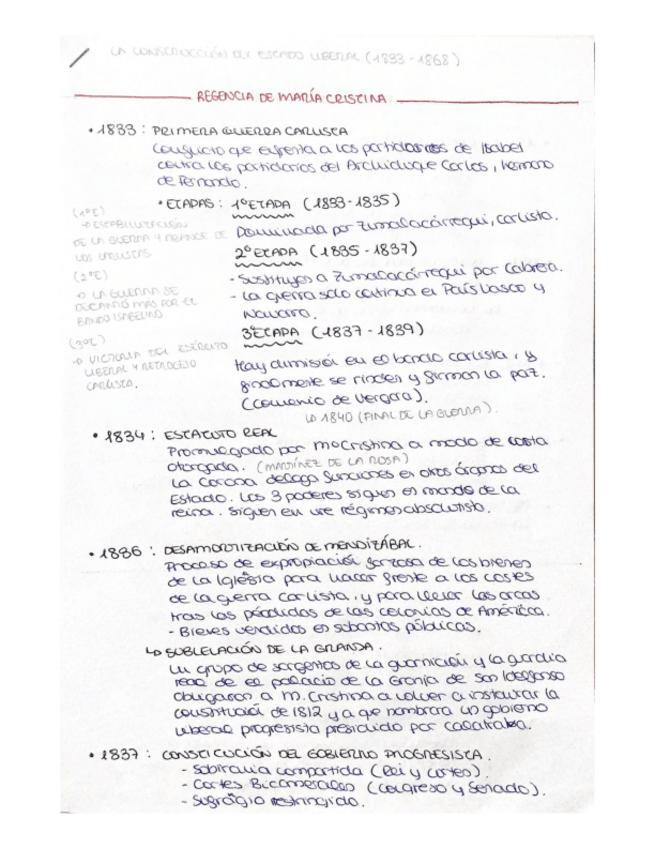 LA CONSTRUCCIÓN DEL ESTADO LIBERAL (1833-1868)
REGENCIA DE MARÍA CRISTINA
• 1833: PRIMERA GUERRA CARLISTA
Conflicto que enfrenta a los partidarios de Isabel
contra los partidarios del Archiduque Carlos, hermano
de Fernando.
• ETAPAS: 1ª ETAPA (1833-1835)
Dominada por Zumalacárregui, carlista.
2ª ETAPA (1835-1837)
- Sustituyes a Zumalacárregui por Cabrera.
- La guerra solo continua en País Vasco y
Navarra.
3ª ETAPA (1837-1839)
Hay dimisión en el bando carlista, y
finalmente se rinden y firman la paz.
(Convenio de Vergara).
↳ 1840 (FINAL DE LA GUERRA).
(1ªE)
→ ESTABILIZACIÓN
DE LA GUERRA Y AVANCE DE
LOS CARLISTAS
(2ªE)
→ LA GUERRA SE
DECANTÓ MÁS POR EL
BANDO ISABELINO
(3ªE)
→ VICTORIA DEL EJÉRCITO
LIBERAL Y RETROCESO
CARLISTA.
• 1834: ESTATUTO REAL
Promulgado por Mª Cristina a modo de carta
otorgada. (MARTÍNEZ DE LA ROSA)
La Corona delega funciones en otros órganos del
Estado. Los 3 poderes siguen en mando de la
reina. Siguen en un régimen absolutista.
• 1836: DESAMORTIZACIÓN DE MENDIZÁBAL.
Proceso de expropiación forzosa de los bienes
de la Iglesia para hacer frente a los costes
de la guerra carlista, y para llenar las arcas
tras las pérdidas de las colonias de América.
- Bienes vendidos en subastas públicas.
↳ SUBLELACIÓN DE LA GRANJA.
Un grupo de sargentos de la guarnición y la guardia
real de el palacio de la Granja de San Idelfonso
obligaron a M. Cristina a volver a instaurar la
constitución de 1812 y a que nombrara un gobierno
liberal progresista presidido por Calatrava.
• 1837: CONSTITUCIÓN DEL GOBIERNO PROGRESISTA.
- Sobiranía compartida (Rei y cortes).
- Cortes Bicamerales (congreso y Senado).
- Sufragio restringido.